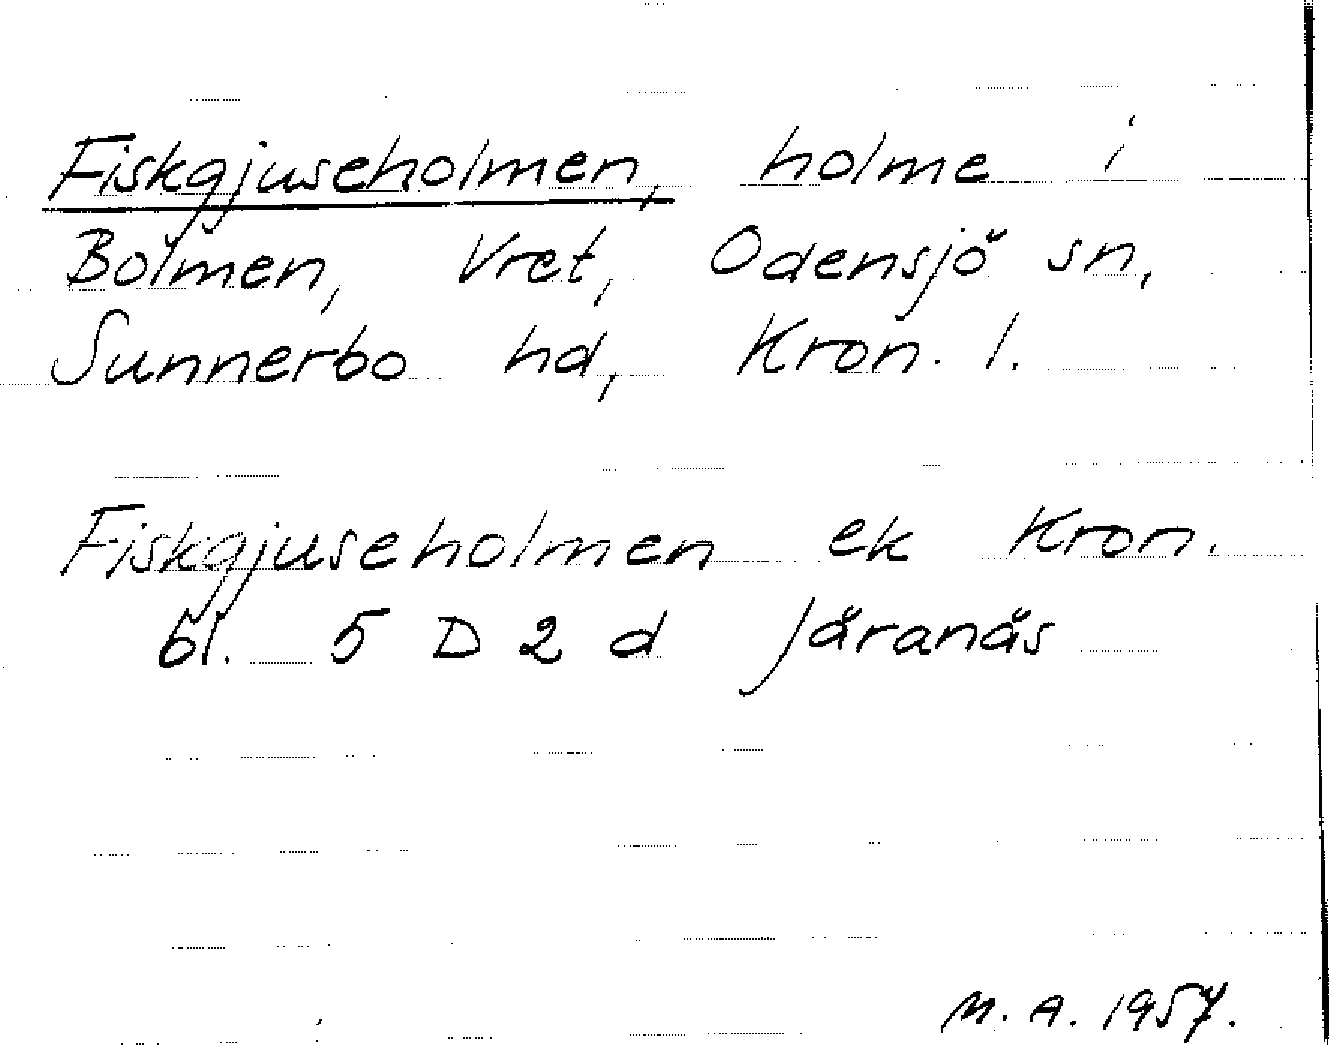 Fiskgjuseholmen, holme i
Bolmen, Vret, Odensjö sn,
Sunnerbo hd, Kron. l.
Fiskgjuseholmen ek Kron.
bl. 5 D 2 d Järanäs
M. A. 1957.